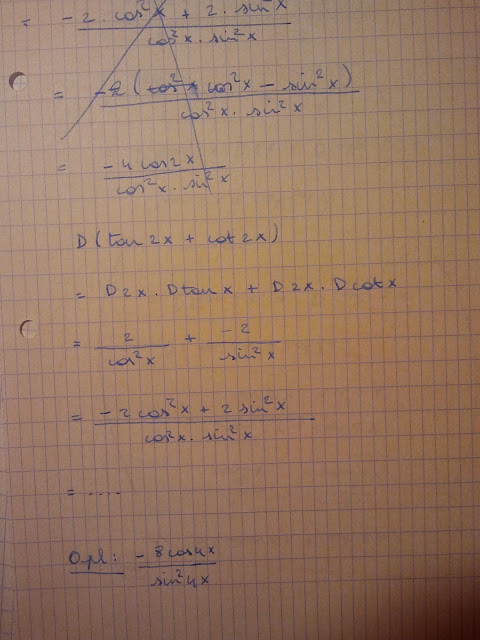 = -2 . cos²x + 2 . sin²x / cos²x . sin²x
= -2 ( cos²x cos²x - sin²x ) / cos²x . sin²x
= -4 cos2x / cos²x . sin²x
D (tan 2x + cot 2x)
= D 2x . D tan x + D 2x . D cot x
= 2 / cos²x + -2 / sin²x
= -2 cos²x + 2 sin²x / cos²x . sin²x
= ....
Opl: -8 cos4x / sin²4x